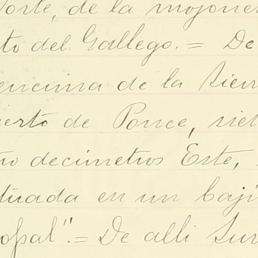 Norte, de la mojone
to del Gallego. = De
encima de la Sier
uerto de Ponce, siet
ho decímetros Este,
tuada en un baji
opal". = De alli Sur